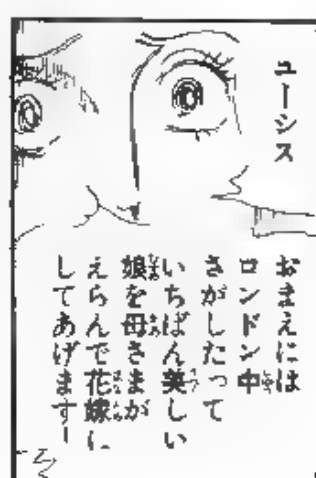 ユーシス
おまえには
ロンドン中
さがしたって
いちばん美しい
娘を母さまが
えらんで花嫁に
してあげます!